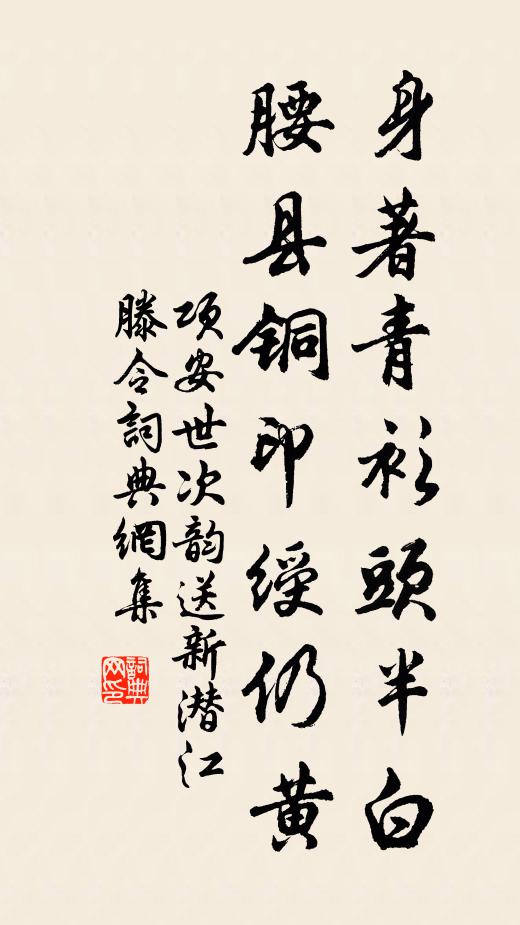 身著青衫頭半白
腰县铜印绶仍黄
项安世次韵送新潜江
滕令詞典網集
詞典网印